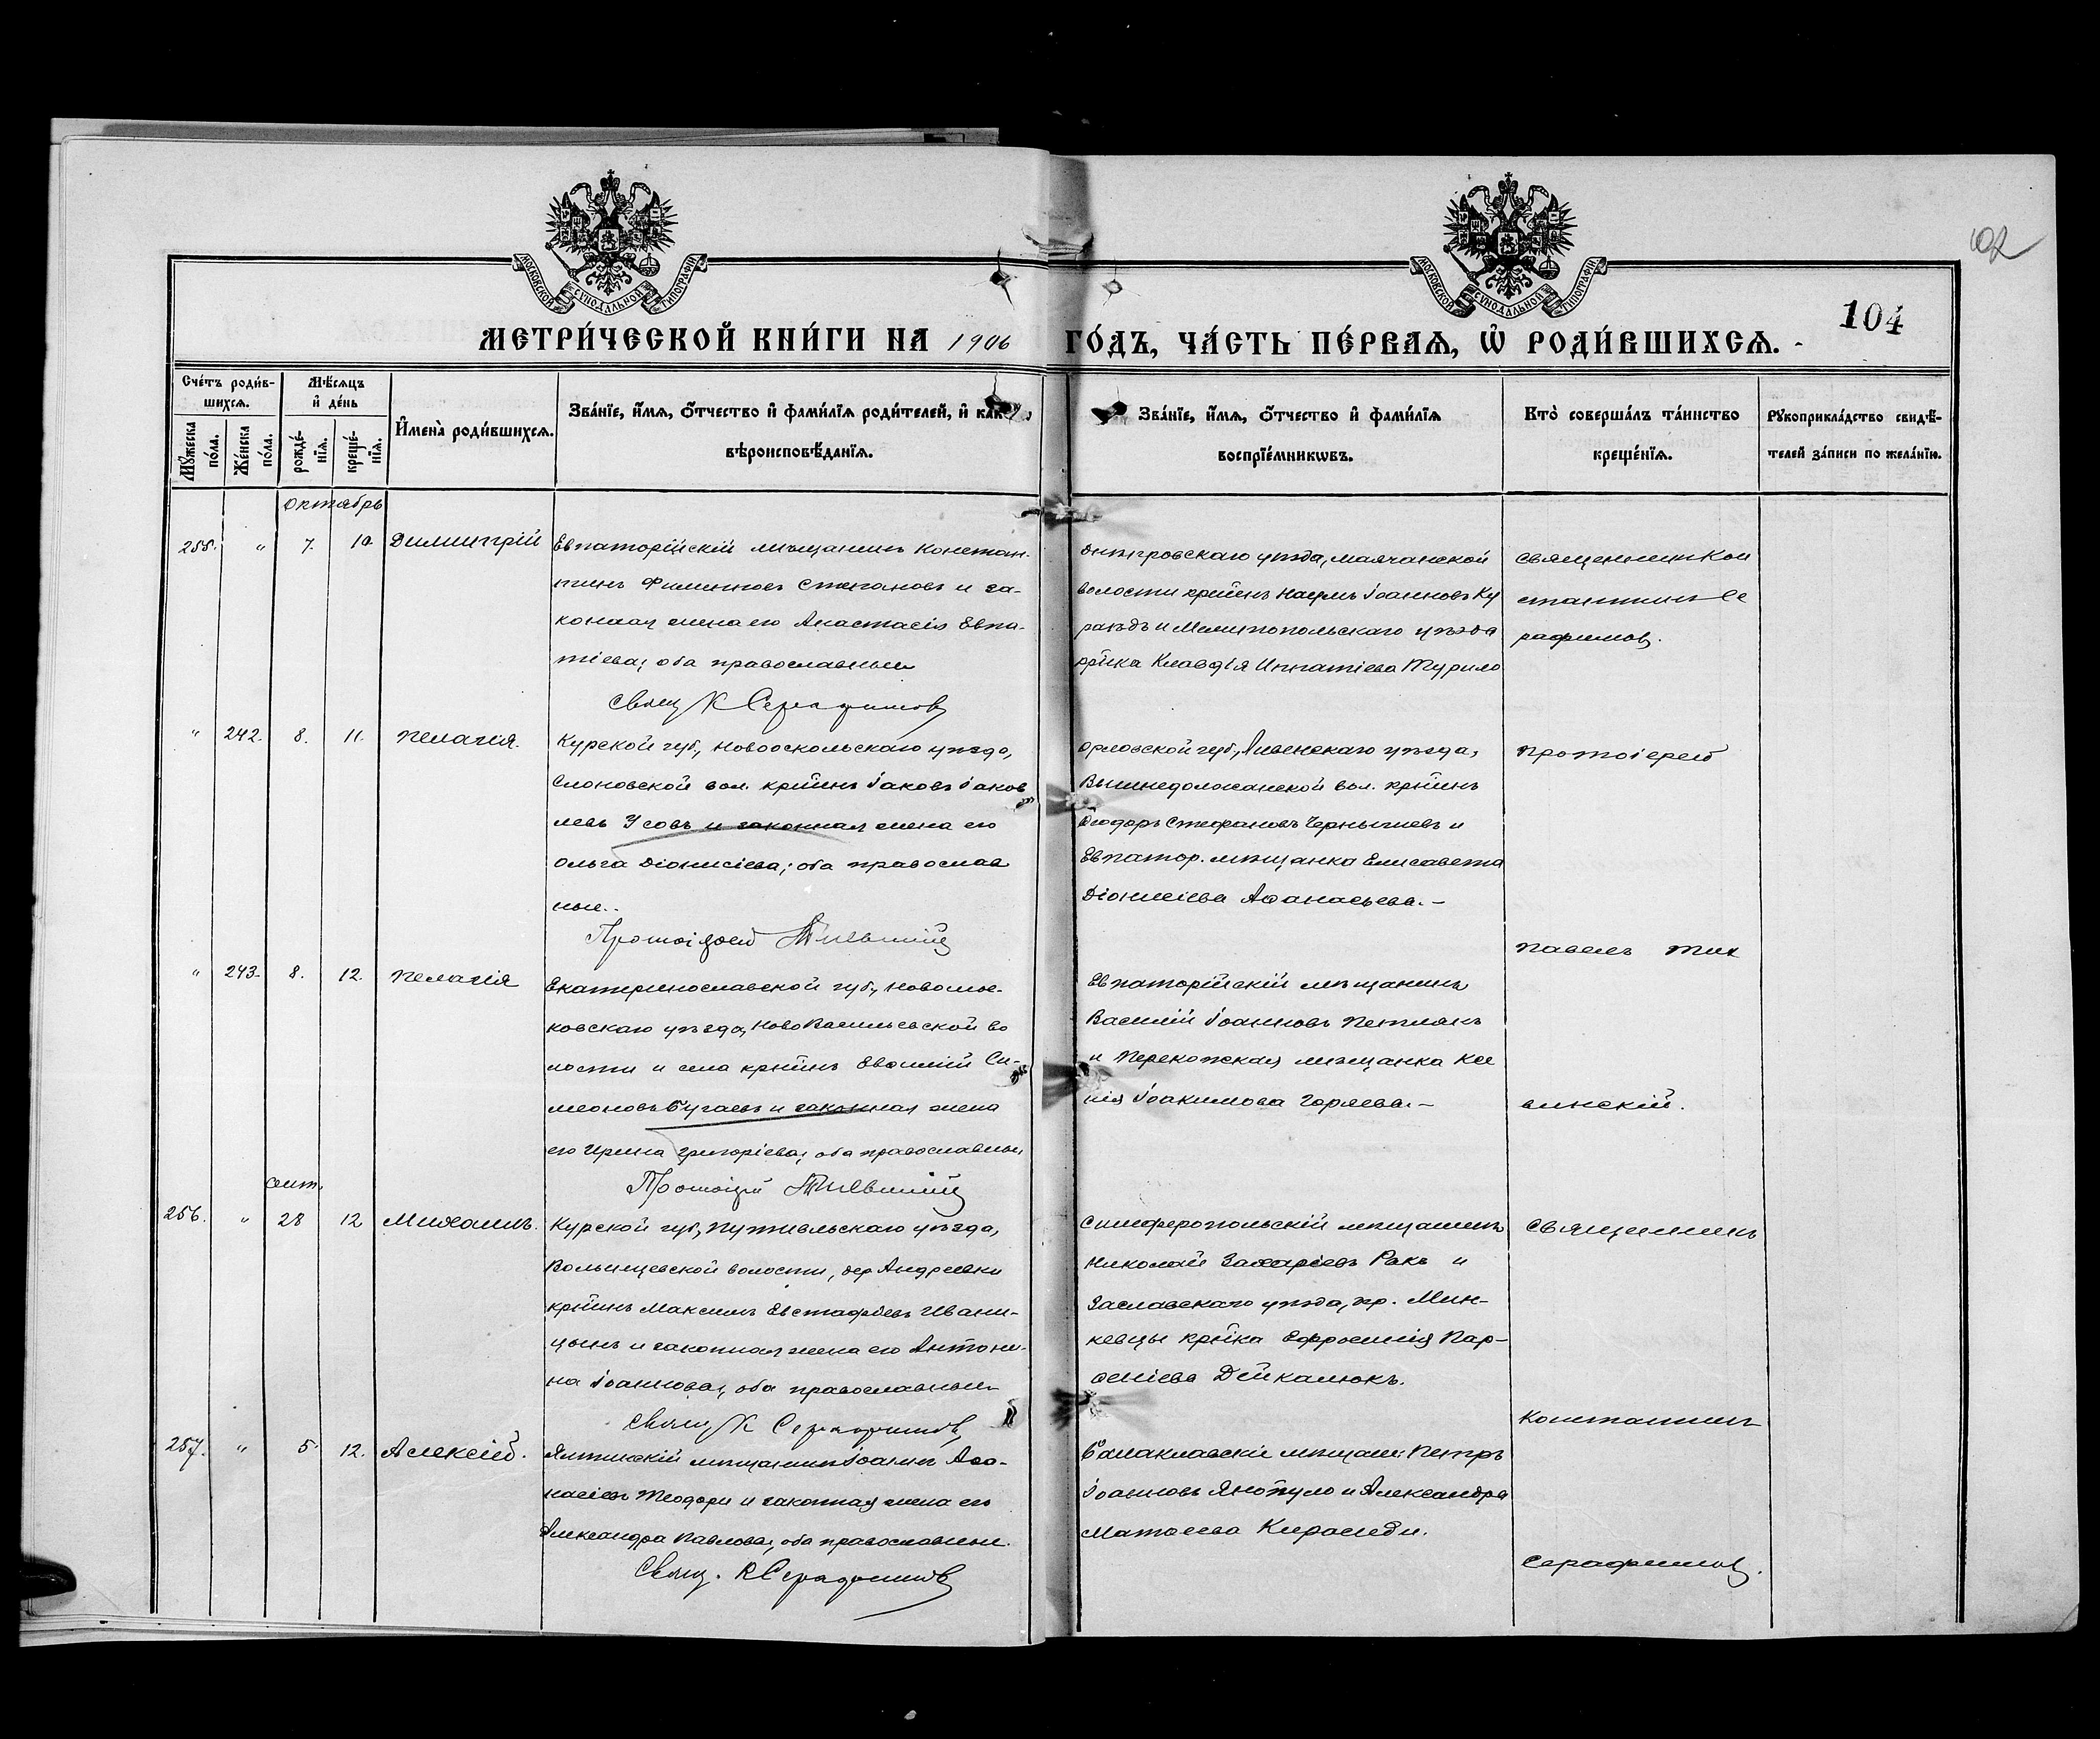 102
104
МОСКОВСКОЙ СѴНОДАЛЬНОЙ ТИПОГРАФІИ
МОСКОВСКОЙ СѴНОДАЛЬНОЙ ТИПОГРАФІИ
МЕТРИ́ЧЕСКОЙ КНИ́ГИ НА 1906 ГО́ДЪ, ЧА́СТЬ ПЕ́РВАЯ, Ѽ РОДИ́ВШИХСЯ.
Сче́тъ роди́в-
шихся.
Му́жеска пола.
Же́нска пола.
Мѣ́сяцъ
и де́нь
рожде́-
нїя.
креще́-
нїя.
Имена̀ роди́вшихся.
Зва́нїе, и́мя, о́тчество и фами́лїя роди́телей, и как
вѣроисповѣ́данїя.
Зва́нїе, и́мя, о́тчество и фами́лїя
воспрїе́мникѡвъ.
Кто̀ соверша́лъ та́инство
креще́нїя.
Рꙋкоприкла́дство свидѣ́-
телей за́писи по жела́нїю.
октябрь
255. " 7. 10. Димитрій
Евпаторійскій мѣщанинъ Констан-
тинъ Филипповъ Степановъ и за-
конная жена его Анастасія Евпа-
тіева, оба православные
Свящ К Серафимовъ
Днѣпровскаго уѣзда, маячанской
волости крѣйнъ Наумъ Іоанновъ Ку
ракъ и Мелитопольскаго уѣзда
крѣйка Клавдія Игнатіева Турило
Священник Кон
стантинъ Се
рафимовъ.
" 242. 8. 11. Пелагія.
Курской губ, Новооскольскаго уѣзда,
Слоновской вол. крѣйнъ Іаковъ Іаков
левъ Усовъ и законная жена его
Ольга Діонисіева; оба православ
ные.
Протоіерей Тихвинскій
Орловской губ, Ливенскаго уѣзда,
Вышнедолжанской вол. крѣйнъ
Ѳеодоръ Стефановъ Чернышевъ и
Евпатор. мѣщанка Елисавета
Діонисіева Аѳанасьева.-
Протоіерей
Павелъ Тих
" 243. 8. 12. Пелагія
Екатеринославской губ, Новомос-
ковскаго уѣзда, НовоВасильевской во
лости и села крѣйнъ Евѳимій Си-
меоновъ Бугаевъ и законная жена
его Ирина Григоріева, оба православные
Протоіерей Тихвинскій
Евпаторійскій мѣщанинъ
Василій Іоанновъ Петлякъ
и Перекопская мѣщанка Ксе
нія Іоакимова Горяева.-
винскій.
сент.
256. " 28 12 Михаилъ.
Курской губ, Путивльскаго уѣзда,
Волынцевской волости, дер Андреевки
крѣйнъ Максимъ Евстафіевъ Ивани-
цынъ и законная жена его Антони-
на Іоаннова, оба православные
Свящ К Серафимовъ
Симферопольскій мѣщанинъ
Николай Захаріевъ Ракъ и
Заславскаго уѣзда, гр. Мин-
кевцы крѣйка Евфросинія Пар-
ѳеніева Дейкалюкъ.
Священникъ
Константинъ
257. " 5. 12. Алексій.
Ялтинскій мѣщанинъ Іоаннъ Аѳа-
насіевъ Теодори и законная жена его
Александра Павлова, оба православные.
Свящ. К Серафимовъ
Балаклавскіе мѣщане Петръ
Іоанновъ Янопуло и Александра
Матѳеева Кирасиди.
Серафимовъ.